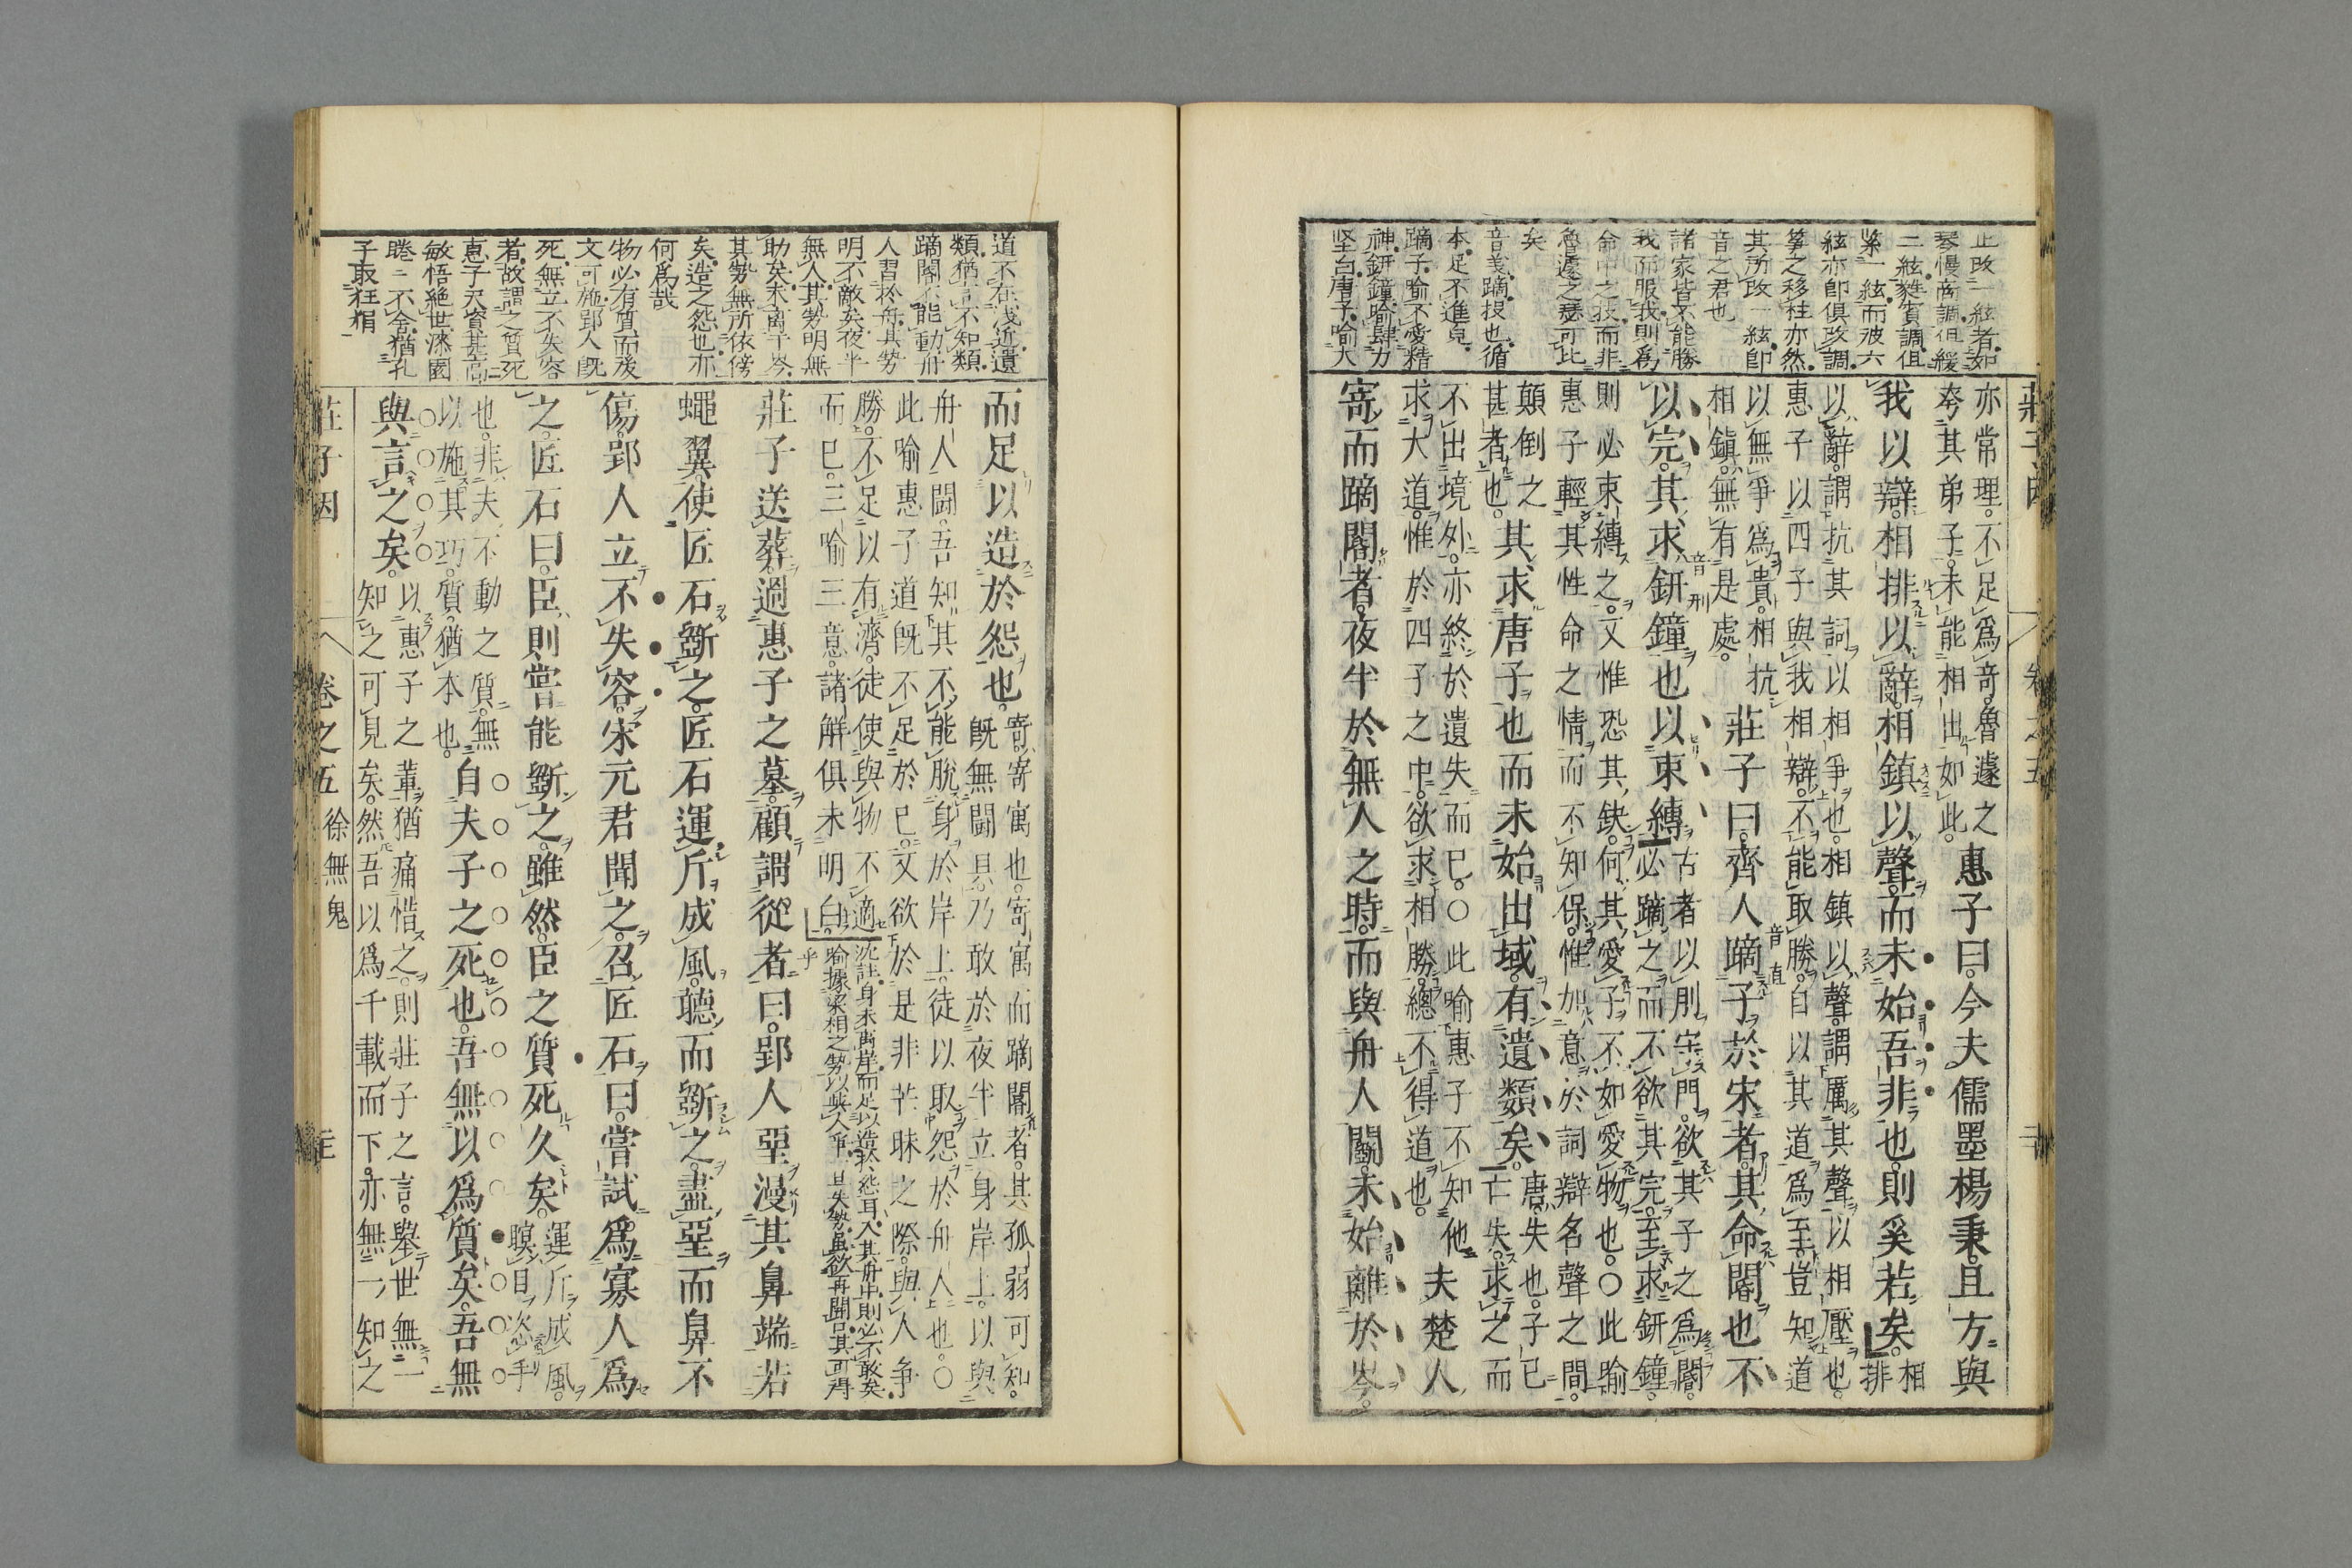 止改一絃者如
琴慢商調但緩
二絃蕤賓調但
緊一絃而彼六
絃亦卽俱改調
箏之移柱亦然
其所改一絃卽
音之君也
諸家皆不能勝
我而服我則爲
命中之技而非
魯遽之瑟可比
矣
音義蹢投也循
本足不進皃
蹢子喻不愛精
神鈃鐘喻肆力
堅白唐子喻大
莊子因
卷之五
亦常理不足爲奇魯遽之
夸其弟子未能相出如此
惠子曰今夫儒墨楊秉且方與
我以辯相排以辭相鎮以聲而未始吾非也則奚若矣
相
排
以辭謂抗其詞以相爭也相鎮以聲謂厲其聲以相壓也
惠子以四子與我相辯不能取勝自以其道爲至豈知道
以無爭爲貴相抗
相鎮無有是處
莊子曰齊人蹢子於宋者其命閽也不
音直
以完其求鈃鐘也以束縛
音刑
古者以刖守門欲其子之爲閽
必蹢之而不欲其完至求鈃鐘
則必束縛之又惟恐其缺何其愛子不如愛物也〇此喻
惠子輕其性命之情而不知保惟加意於詞辯名聲之間
顛倒之
甚者也
其求唐子也而未始出域有遺類矣
唐失也子已
亡失求之而
不出境外亦終於遺失而已〇此喻惠子不知他
求大道惟於四子之中欲求相勝總不得道也
夫楚人
寄而蹢閽者夜半於無人之時而與舟人鬬未始離於岑
道不在淺近遺
類猶言不知類
蹢閽不能動舟
人習於舟其勢
明不敵矣夜半
無人其勢明無
助矣未離于岑
其勢無所依傍
矣造之怨也亦
何爲哉
物必有質而後
文可施郢人旣
死無立不失容
者故謂之質死
惠子天資甚高
敏悟絕世漆園
睠二不舍猶孔
子取狂狷
而足以造於怨也
寄寄寓也寄寓而蹢閽者其孤弱可知
旣無鬬具乃敢於夜半立身岸上以與
舟人鬬吾知其不能脫身於岸上徒以取怨於舟人也〇
此喻惠子道旣不足於己又欲於是非芒昧之際與人爭
勝不足以有濟徒使與物不適
而已三喻三意諸解俱未明白
沈註身未离岸而足以造於怨耳入其舟中則必不敢矣
喻據梁相之勢以與人爭且失勢雖欲再鬬口其可得
乎
莊子送葬過惠子之墓顧謂從者曰郢人堊漫其鼻端若
蠅翼使匠石斲之匠石運斤成風聽而斲之盡堊而鼻不
傷郢人立不失容宋元君聞之召匠石曰嘗試爲寡人爲
之匠石曰臣則嘗能斲之雖然臣之質死久矣
運斤成風
瞑目恣手
也非夫不動之質無
以施其巧質猶本也
自夫子之死也吾無以爲質矣吾無
與言之矣
以惠子之辈猶痛惜之則莊子之言舉世無一
知之可見矣然吾以爲千載而下亦無一知之
莊子因
卷之五
徐無鬼